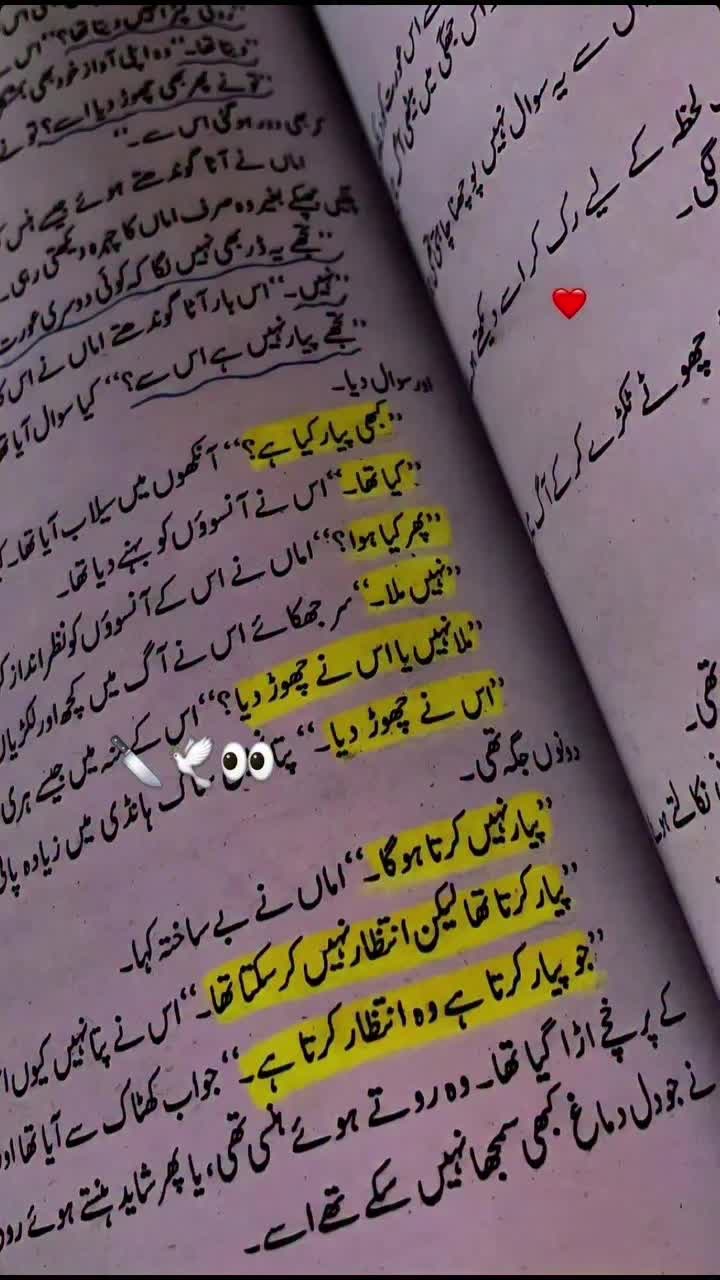 دیتا تھا۔" وہ اپنی آواز خود بھی
"تو نے پھر بھی چھوڑ دیا اسے؟ تو نے
بھی دور ہو گئی اس سے۔"
اماں نے آٹا گوندھتے ہوئے جیسے ہنس
جھپکے بغیر وہ صرف اماں کا چہرہ دیکھتی رہی۔
"تجھے یہ ڈر بھی نہیں لگا کہ کوئی دوسری عورت
"نہیں۔" اس بار آٹا گوندھتے اماں نے اس
"تجھے پیار نہیں ہے اس سے؟" کیا سوال آیا
اور سوال دیا۔
"کبھی پیار کیا ہے؟" آنکھوں میں سیلاب آیا تھا۔
"کیا تھا۔" اس نے آنسوؤں کو بہنے دیا تھا۔
"پھر کیا ہوا؟" اماں نے اس کے آنسوؤں کو نظر انداز
"نہیں ملا۔" سر جھکائے اس نے آگ میں کچھ اور لکڑیاں
"ملا نہیں یا اس نے چھوڑ دیا؟" اس کے میں جیسے ہری
"اس نے چھوڑ دیا۔" ہانڈی میں زیادہ
دونوں جگہ تھی۔
"پیار نہیں کرتا ہوگا۔" اماں نے بے ساختہ کہا۔
"پیار کرتا تھا لیکن انتظار نہیں کر سکتا تھا۔" اس نے پتا نہیں کیوں
"جو پیار کرتا ہے وہ انتظار کرتا ہے۔" جواب کھٹاک سے آیا تھا اور
کے پرخچے اڑا گیا تھا۔ وہ روتے ہوئے ہنسی تھی، یا پھر شاید ہنستے ہوئے
نے جو دل دماغ کبھی سمجھا نہیں سکے تھے اسے۔
سے یہ سوال نہیں پوچھنا چاہتی
لحظہ کے لیے رک کر اسے دیکھتے
گئی۔
چھوٹے ٹکڑے کر کے آگ
تھی۔
نکالتے